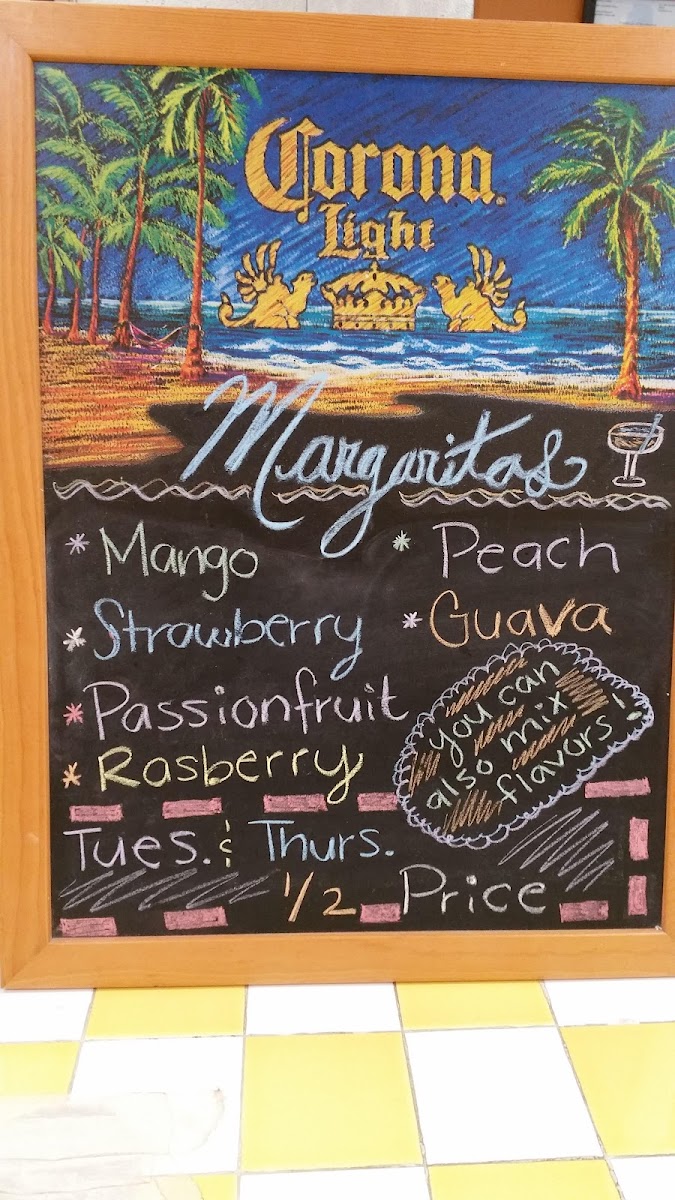 Corona
Light
Margaritas
* Mango
* Peach
* Strawberry
* Guava
* Passionfruit
* Rasberry
you can
also mix
flavors!
Tues. & Thurs.
1/2 Price